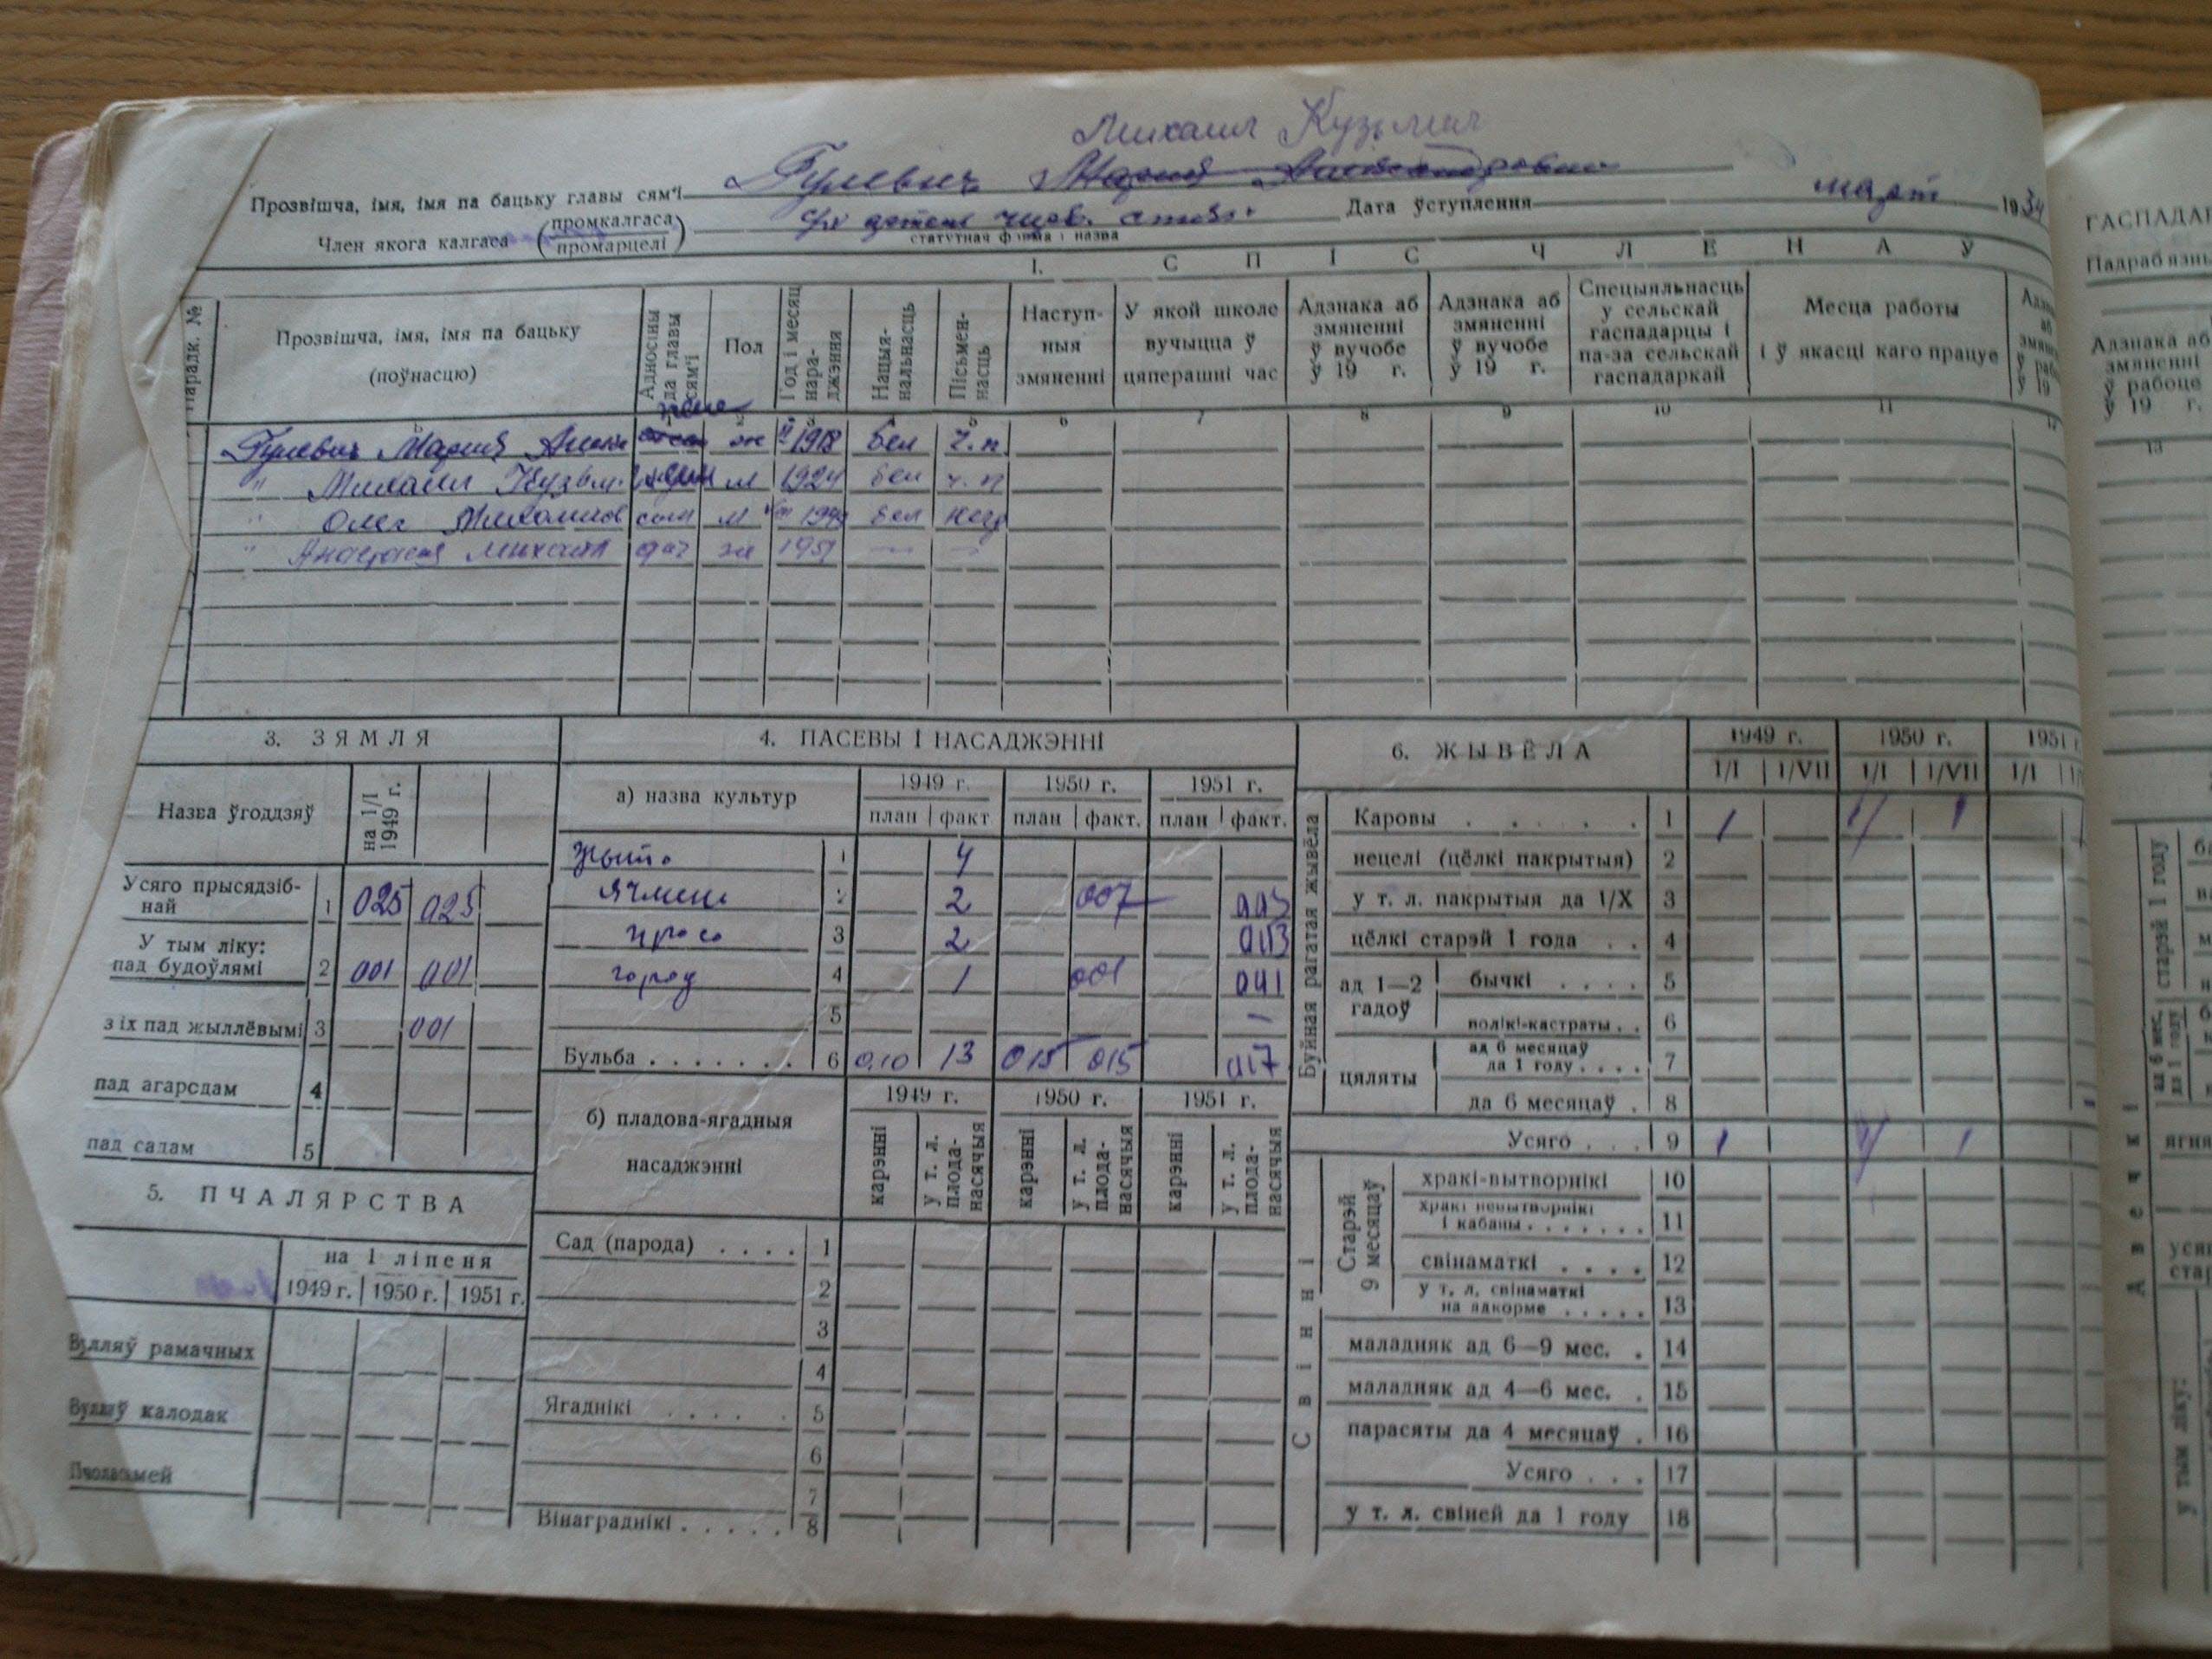 Михаил Кузьмич
Прозвішча, імя, імя па бацьку главы сям'і Гулевич Мария
Член якога калгаса (промкалгаса промарцелі) статутная форма і назва Дата ўступлення март 1934
1. С П І С Ч Л Е Н А Ў
Парадк. № Прозвішча, імя, імя па бацьку (поўнасцю) Адносіны да главы сям'і Пол Год і месяц нараджэння Нацыянальнасць Пісьменнасць Наступныя змяненні У якой школе вучыцца ў цяперашні час Адзнака аб змяненні ў вучобе ў 19 г. Адзнака аб змяненні ў вучобе ў 19 г. Спецыяльнасць у сельскай гаспадарцы і па-за сельскай гаспадаркай Месца работы і ў якасці каго працуе
5 6 7 8 9 10 11 12
жена
Гулевич Мария ж 1918 бел
" Михаил Кузьм. м 1924 бел ч. п
" Олег Михайлов сын м бел
" Анастасия Михайл доч ж 1951 — —
3. ЗЯМЛЯ
Назва ўгоддзяў на 1/I 1949 г.
Усяго прысядзібнай 1 025 025
У тым ліку:
пад будоўлямі 2 001 001
з іх пад жыллёвымі 3 001
пад агародам 4
пад садам 5
5. ПЧАЛЯРСТВА
на 1 ліпеня
1949 г. 1950 г. 1951 г.
Вулляў рамачных
Вулляў калодак
Пчоласямей
4. ПАСЕВЫ І НАСАДЖЭННІ
а) назва культур 1949 г. 1950 г. 1951 г.
план факт. план факт. план факт.
жыто 1 4
ячмень 2 2 007 003
просо 3 2
город 4 1 001
5 —
Бульба . . . . . . . 6 0,10 13 015 015 017
б) пладова-ягадныя насаджэнні 1949 г. 1950 г. 1951 г.
карэнні у т. л. плоданасячыя карэнні у т. л. плоданасячыя карэнні у т. л. плоданасячыя
Сад (парода) . . . . 1
2
3
4
Ягаднікі . . . . . 5
6
7
Вінаграднікі . . . . . 8
6. ЖЫВЁЛА 1949 г. 1950 г. 1951 г.
1/I 1/VII 1/I 1/VII 1/I
Буйная рагатая жывёла
Каровы . . . . . 1 1 1 1
нецелі (цёлкі пакрытыя) 2
у т. л. пакрытыя да 1/X 3
цёлкі старэй 1 года . . 4
ад 1—2 гадоў бычкі . . . . 5
волікі-кастраты . . 6
цяляты ад 6 месяцаў да 1 году . . . . 7
да 6 месяцаў . 8
Усяго . . . 9 1 1 1
Свінні
Старэй 9 месяцаў хракі-вытворнікі 10
хракі невытворнікі і кабаны . . . . . . . 11
свінаматкі . . . . 12
у т. л. свінаматкі на адкорме . . . . . 13
маладняк ад 6—9 мес. . 14
маладняк ад 4—6 мес. . 15
парасяты да 4 месяцаў . 16
Усяго . . . 17
у т. л. свіней да 1 году 18
Адзнака аб змяненні ў рабоце ў 19 г.
13